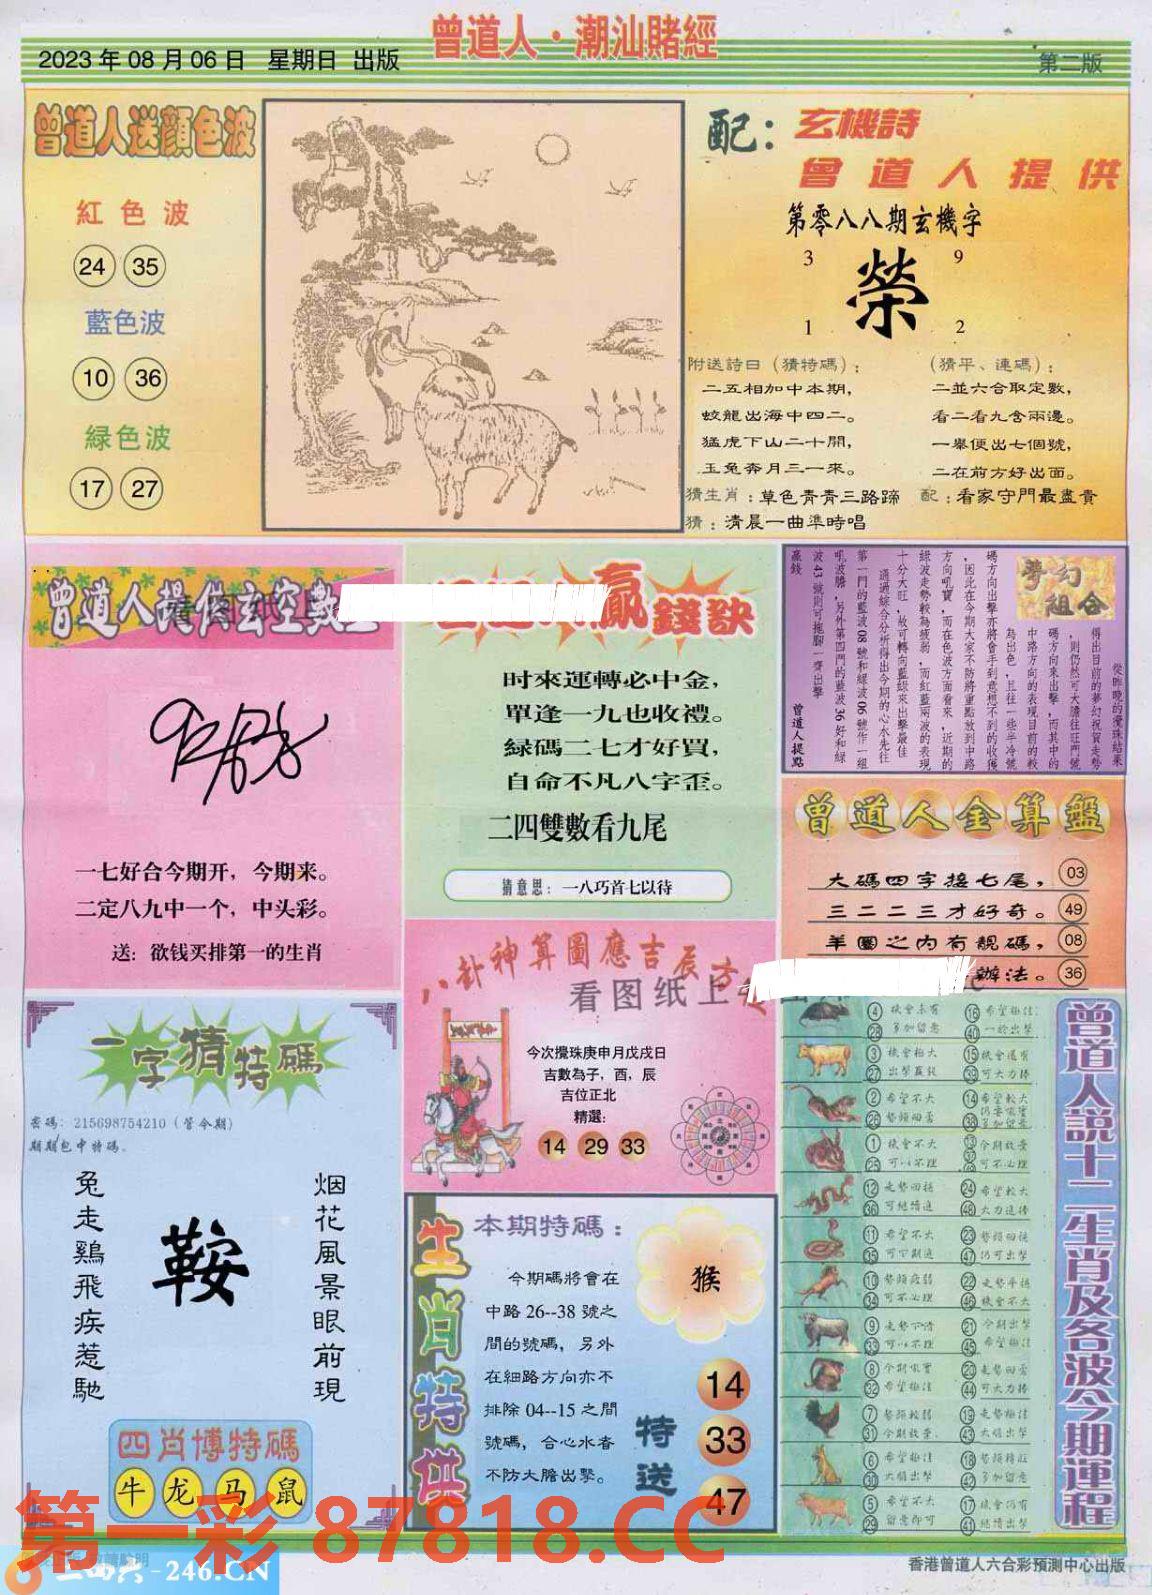 曾道人·潮汕賭經
2023年08月06日 星期日 出版
第二版
曾道人送顏色波
紅色波
24 35
藍色波
10 36
緑色波
17 27
配：玄機詩
曾道人提供
第零八八期玄機字
3 9
榮
1 2
附送詩曰（猜特碼）：
二五相加中本期，
蛟龍出海中四二。
猛虎下山二十開，
玉兔奔月三一來。
（猜平、連碼）：
二並六合取定數，
看二看九含兩邊。
一舉便出七個號，
二在前方好出面。
猜生肖：草色青青三路蹄 配：看家守門最盡責
猜：清晨一曲準時唱
曾道人提供玄空數
一七好合今期开，今期来。
二定八九中一个，中头彩。
送：欲钱买排第一的生肖
贏錢訣
时來運轉必中金，
單逢一九也收禮。
緑碼二七才好買，
自命不凡八字歪。
二四雙數看九尾
猜意思：一八巧首七以待
夢幻組合
從昨晚的攪珠結果
得出目前的夢幻祝賀走勢
，則仍然可大膽往旺門號
碼方向來出擊，而其中的
中路方向的表現目前的較
為出色，且往一些半冷號
碼方向出擊亦將會手到意想不到的收獲
，因此在今期大家不防將重點放到中路
方向吼寶，而在色波方面看來，近期的
緑波走勢較為疲弱，而紅藍兩波的表現
十分大旺，故可轉向藍緑來出擊最佳
通過綜合分析得出今期的心水先往
第一門的藍波08號和緑波06號作一組
吼波膽，另外第四門的藍波36好和緑
波43號則可拖腳一齊出擊
贏錢
曾道人提點
曾道人金算盤
大碼四字接七尾， 03
三二二三才好奇。 49
羊圈之内有靚碼， 08
辦法。 36
一字猜特碼
密碼：215698754210（管令期）
期期包中特碼。
兔走鷄飛疾惹馳
鞍
烟花風景眼前現
四肖博特碼
牛 龙 马 鼠
八卦神算圖應吉辰吉
看图纸上
今次攪珠庚申月戊戌日
吉數為子，酉，辰
吉位正北
精選:
14 29 33
生肖特供
本期特碼：
今期碼將會在
中路26--38號之
間的號碼，另外
在細路方向亦不
排除04--15之間
號碼，合心水者
不防大膽出擊。
猴
特送
14
33
47
曾道人説十二生肖及各波今期運程
4 機會未有 16 希望極佳
28 多加留意 40 一於出擊
3 機會極大 15 機會還有
27 出擊贏錢 39 可大力捧
2 希望不大 14 希望較大
26 勢頭回落 38
1 機會不大 13 今期放棄
25 可以不理 37 可不必理
12 走勢回穩 24 希望較大
36 可繼續追 48 大力追捧
11 希望不大 23 勢頭回穩
35 可下期追 47 仍可出擊
10 勢頭疲弱 22 走勢平穩
34 可不必理 46 機會不大
9 走勢下滑 21 今期出擊
33 可以不理 45 希望極佳
8 今期吼實 20 走勢回落
32 希望極佳 44 可大力捧
7 勢頭較弱 19 走勢極佳
31 今期放棄 43 大膽出擊
6 機會極佳 18 勢頭轉旺
30 大膽出擊 42 多加留意
5 希望不大 17 機會仍有
29 留意即可 41 繼續出擊
第一彩 87818.CC
246.CN
香港曾道人六合彩預測中心出版